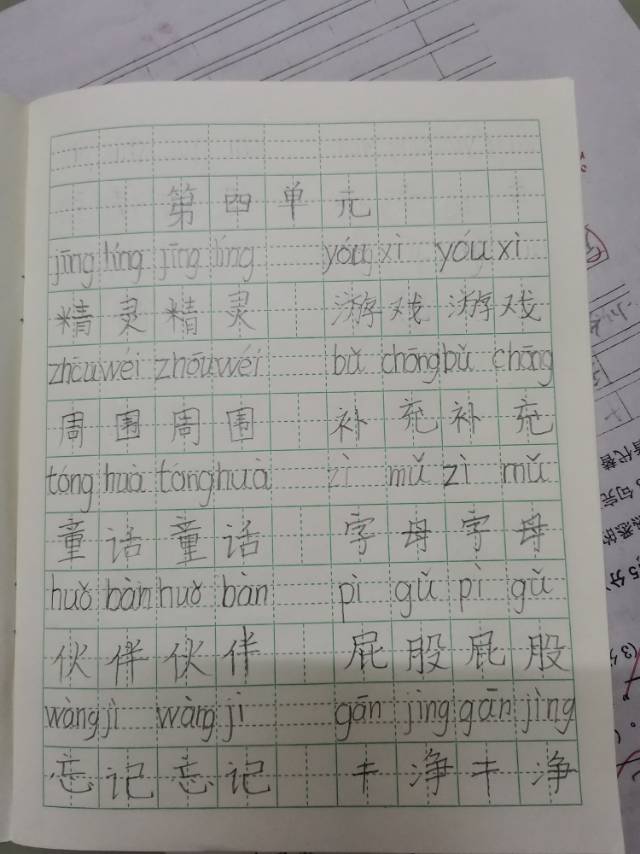 第四单元
jīng líng jīng líng yóu xì yóu xì
精灵精灵 游戏游戏
zhōu wéi zhōu wéi bǔ chōng bǔ chōng
周围周围 补充补充
tóng huà tóng huà zì mǔ zì mǔ
童话童话 字母字母
huǒ bàn huǒ bàn pì gǔ pì gǔ
伙伴伙伴 屁股屁股
wàng jì wàng jì gān jìng gān jìng
忘记忘记 干净干净